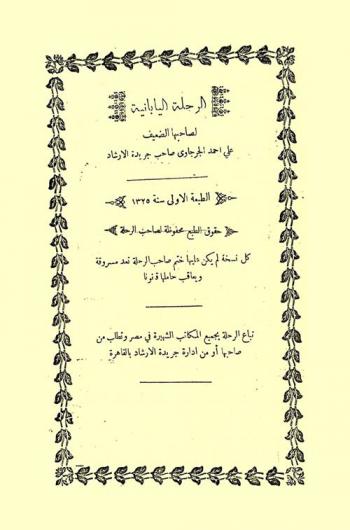 الرحلة اليابانية
لصاحبها الضعيف
علي احمد الجرجاوى صاحب جريدة الارشاد
الطبعة الاولى سنة ١٣٢٥
حقوق الطبع محفوظة لصاحب الرحلة
كل نسخة لم يكن عليها ختم صاحب الرحلة تعد مسروقة
ويعاقب حاملها قانونا
تباع الرحلة بجميع المكاتب الشهيرة في مصر وتطلب من
صاحبها أو من ادارة جريدة الارشاد بالقاهرة